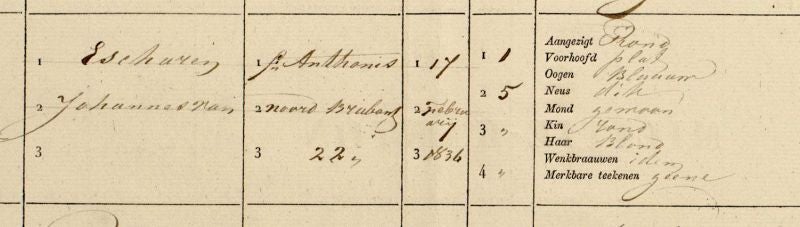 1 Escharen 1 St Anthonis 1 17 1 1 Aangezigt Rond
Voorhoofd plat
Oogen Blaauw
2 Johannes van 2 Noord Braband 2 Febru 2 5 Neus dik
arij Mond gemoon
3 „ Kin rond
3 3 22 „ 3 1836 Haar Blond
Wenkbraauwen idem
4 „ Merkbare teekenen geene